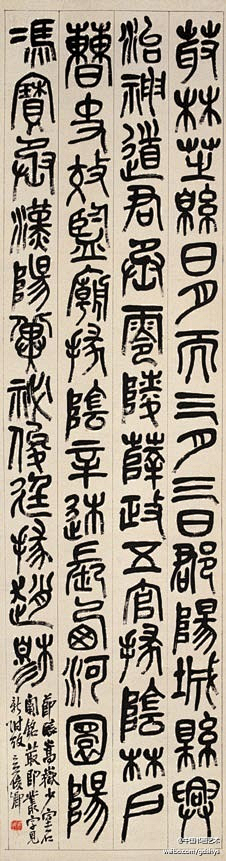 菆林芝縣日月而三月三日郡陽城縣興
治神道君丞零陵薛政五官掾陰林戶
曹史效監廟掾陰辛述長西河圜陽
馮寶丞漢陽冀祕俊廷掾趙穆
節臨嵩嶽少室石
闕銘菆即叢字見
新坿攷
@中国书画艺术
weibo.com/gddhys